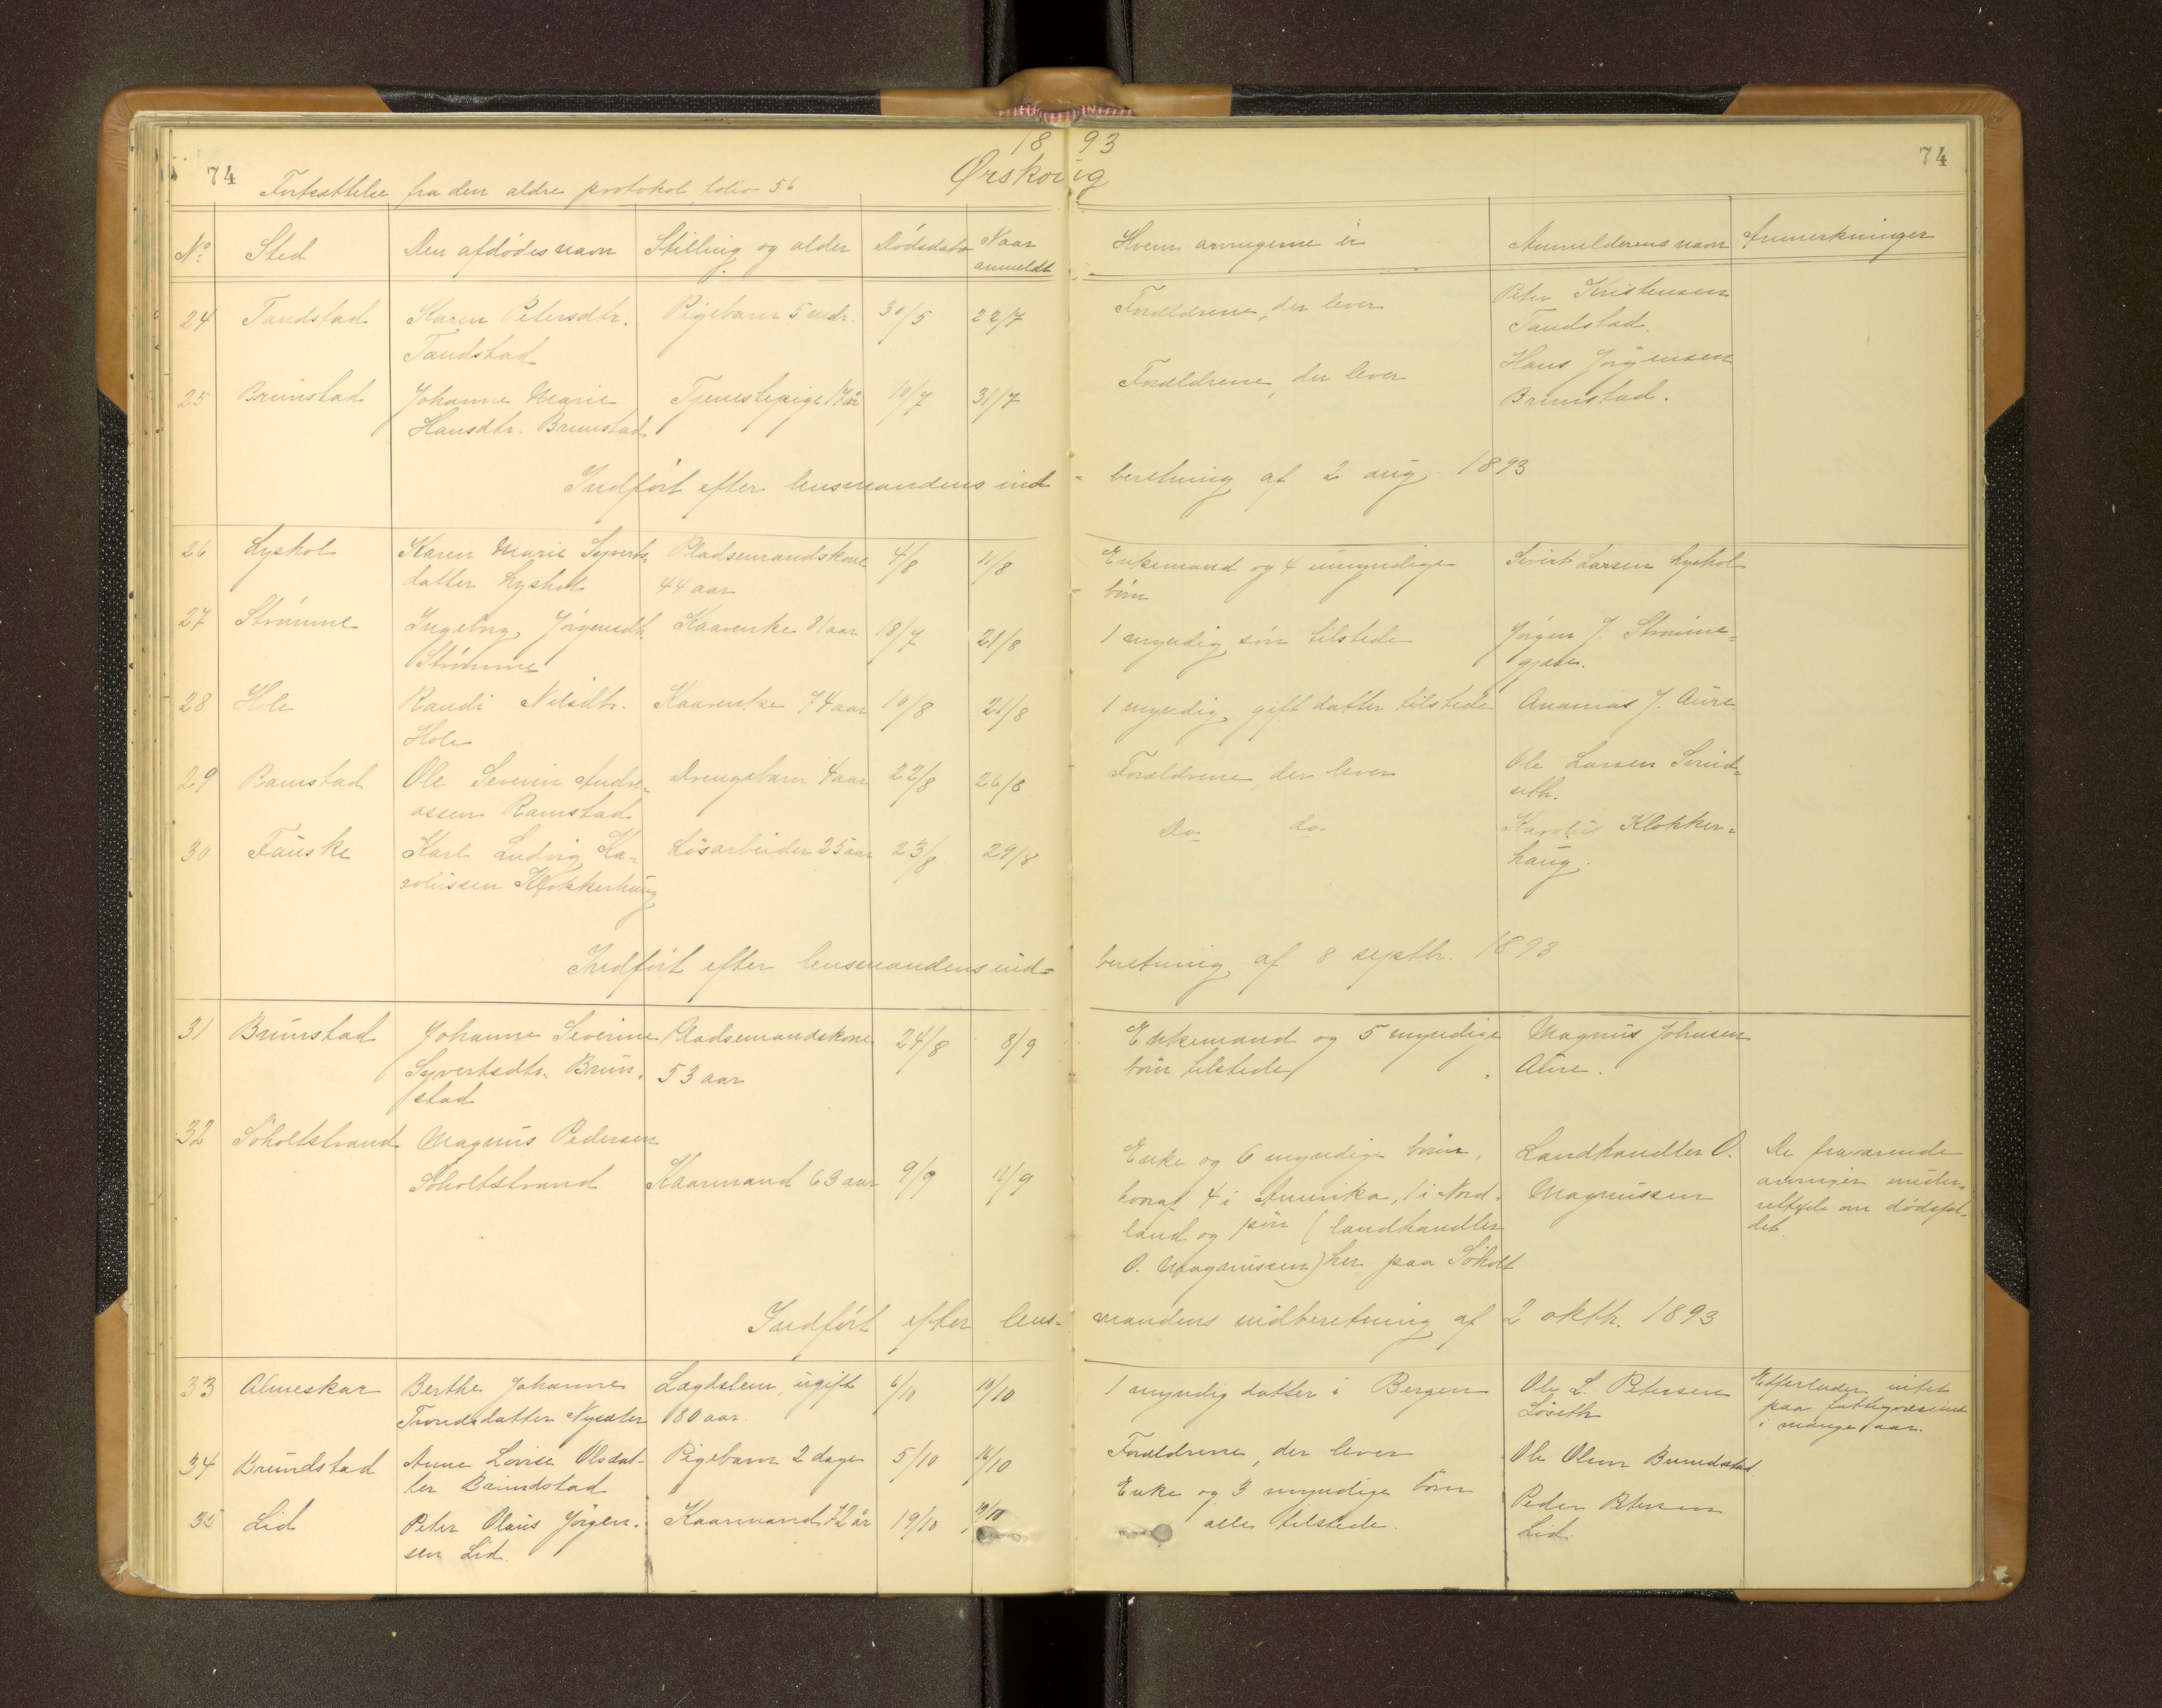 18 93
74 Fortsættelse fra den ældre protokol folio 56 Ørskoug 74
No Sted Den afdødes navn Stilling og alder Dødsdato Naar anmeldt Hvem arvingerne er Anmelderens navn Anmerkninger
24 Tandstad Karen Petersdtr. Pigebarn 5 mdr. 30/5 22/7 Forældrene, der lever Peter Kristensen
Tandstad Tandstad.
25 Brunstad Johanne Marie Tjenestepige 17 år 10/7 31/7 Forældrene, der lever Hans Jørgensen
Hansdtr. Brunstad Brunstad.
Indført efter lensmandens ind- beretning af 2 aug. 1893
26 Lyshol Karen Marie Syverts- Pladsemandskone 4/8 11/8 Enkemand og 4 umyndige Sivert Larsen Lyshol
datter Lyshol 44 aar børn
27 Strømme Ingeborg Jørgensdtr. Kaarenke 81 aar 18/7 21/8 1 myndig søn tilstede Jørgen J. Strømme-
Strømme gjære.
28 Hole Randi Nilsdtr. Kaarenke 74 aar 10/8 21/8 1 myndig, gift datter tilstede Ananias J. Aure
Hole
29 Ramstad Ole Severin Andre- Drengebarn 4 aar 22/8 26/8 Forældrene, der lever Ole Larsen Svind-
assen Ramstad seth.
30 Fauske Karl Ludvig Ka- Løsarbeider 25 aar 23/8 29/8 Do do Karolus Klokker-
rolussen Klokkerhaug haug.
Indført efter lensmandens ind- beretning af 8 septbr. 1893
31 Brunstad Johanne Severine Pladsemandskone 24/8 8/9 Enkemand og 5 myndige Magnus Johnsen
Syvertsdtr. Brun- 53 aar børn tilstede Aure.
stad
32 Søholtstrand Magnus Pedersen Enke og 6 myndige børn, Landhandler O. De fraværende
Søholtstrand Kaarmand 63 aar 9/9 11/9 hvoraf 4 i Amerika, 1 i Nord- Magnussen arvinger under-
land og søn (landhandler rettede om dødsfal-
O. Magnussen) her paa Søholt det.
Indført efter lens- mandens indberetning af 2 oktbr. 1893
33 Almeskar Berthe Johanne Lægdslem, ugift 6/10 10/10 1 myndig datter i Bergen Ole L. Petersen Efterlader intet
Trondsdatter Nysæter 80 aar. Løseth paa fattigvæsenet
i mange aar.
34 Brundstad Anne Lovise Olsdat- Pigebarn 2 dage 5/10 16/10 Forældrene, der lever Ole Olsen Brundstad
ter Brundstad
35 Lid Peter Olaus Jørgen- Kaarmand 72 år 19/10 19/10 Enke og 3 myndige børn Peder Petersen
sen Lid. alle tilstede. Lid.